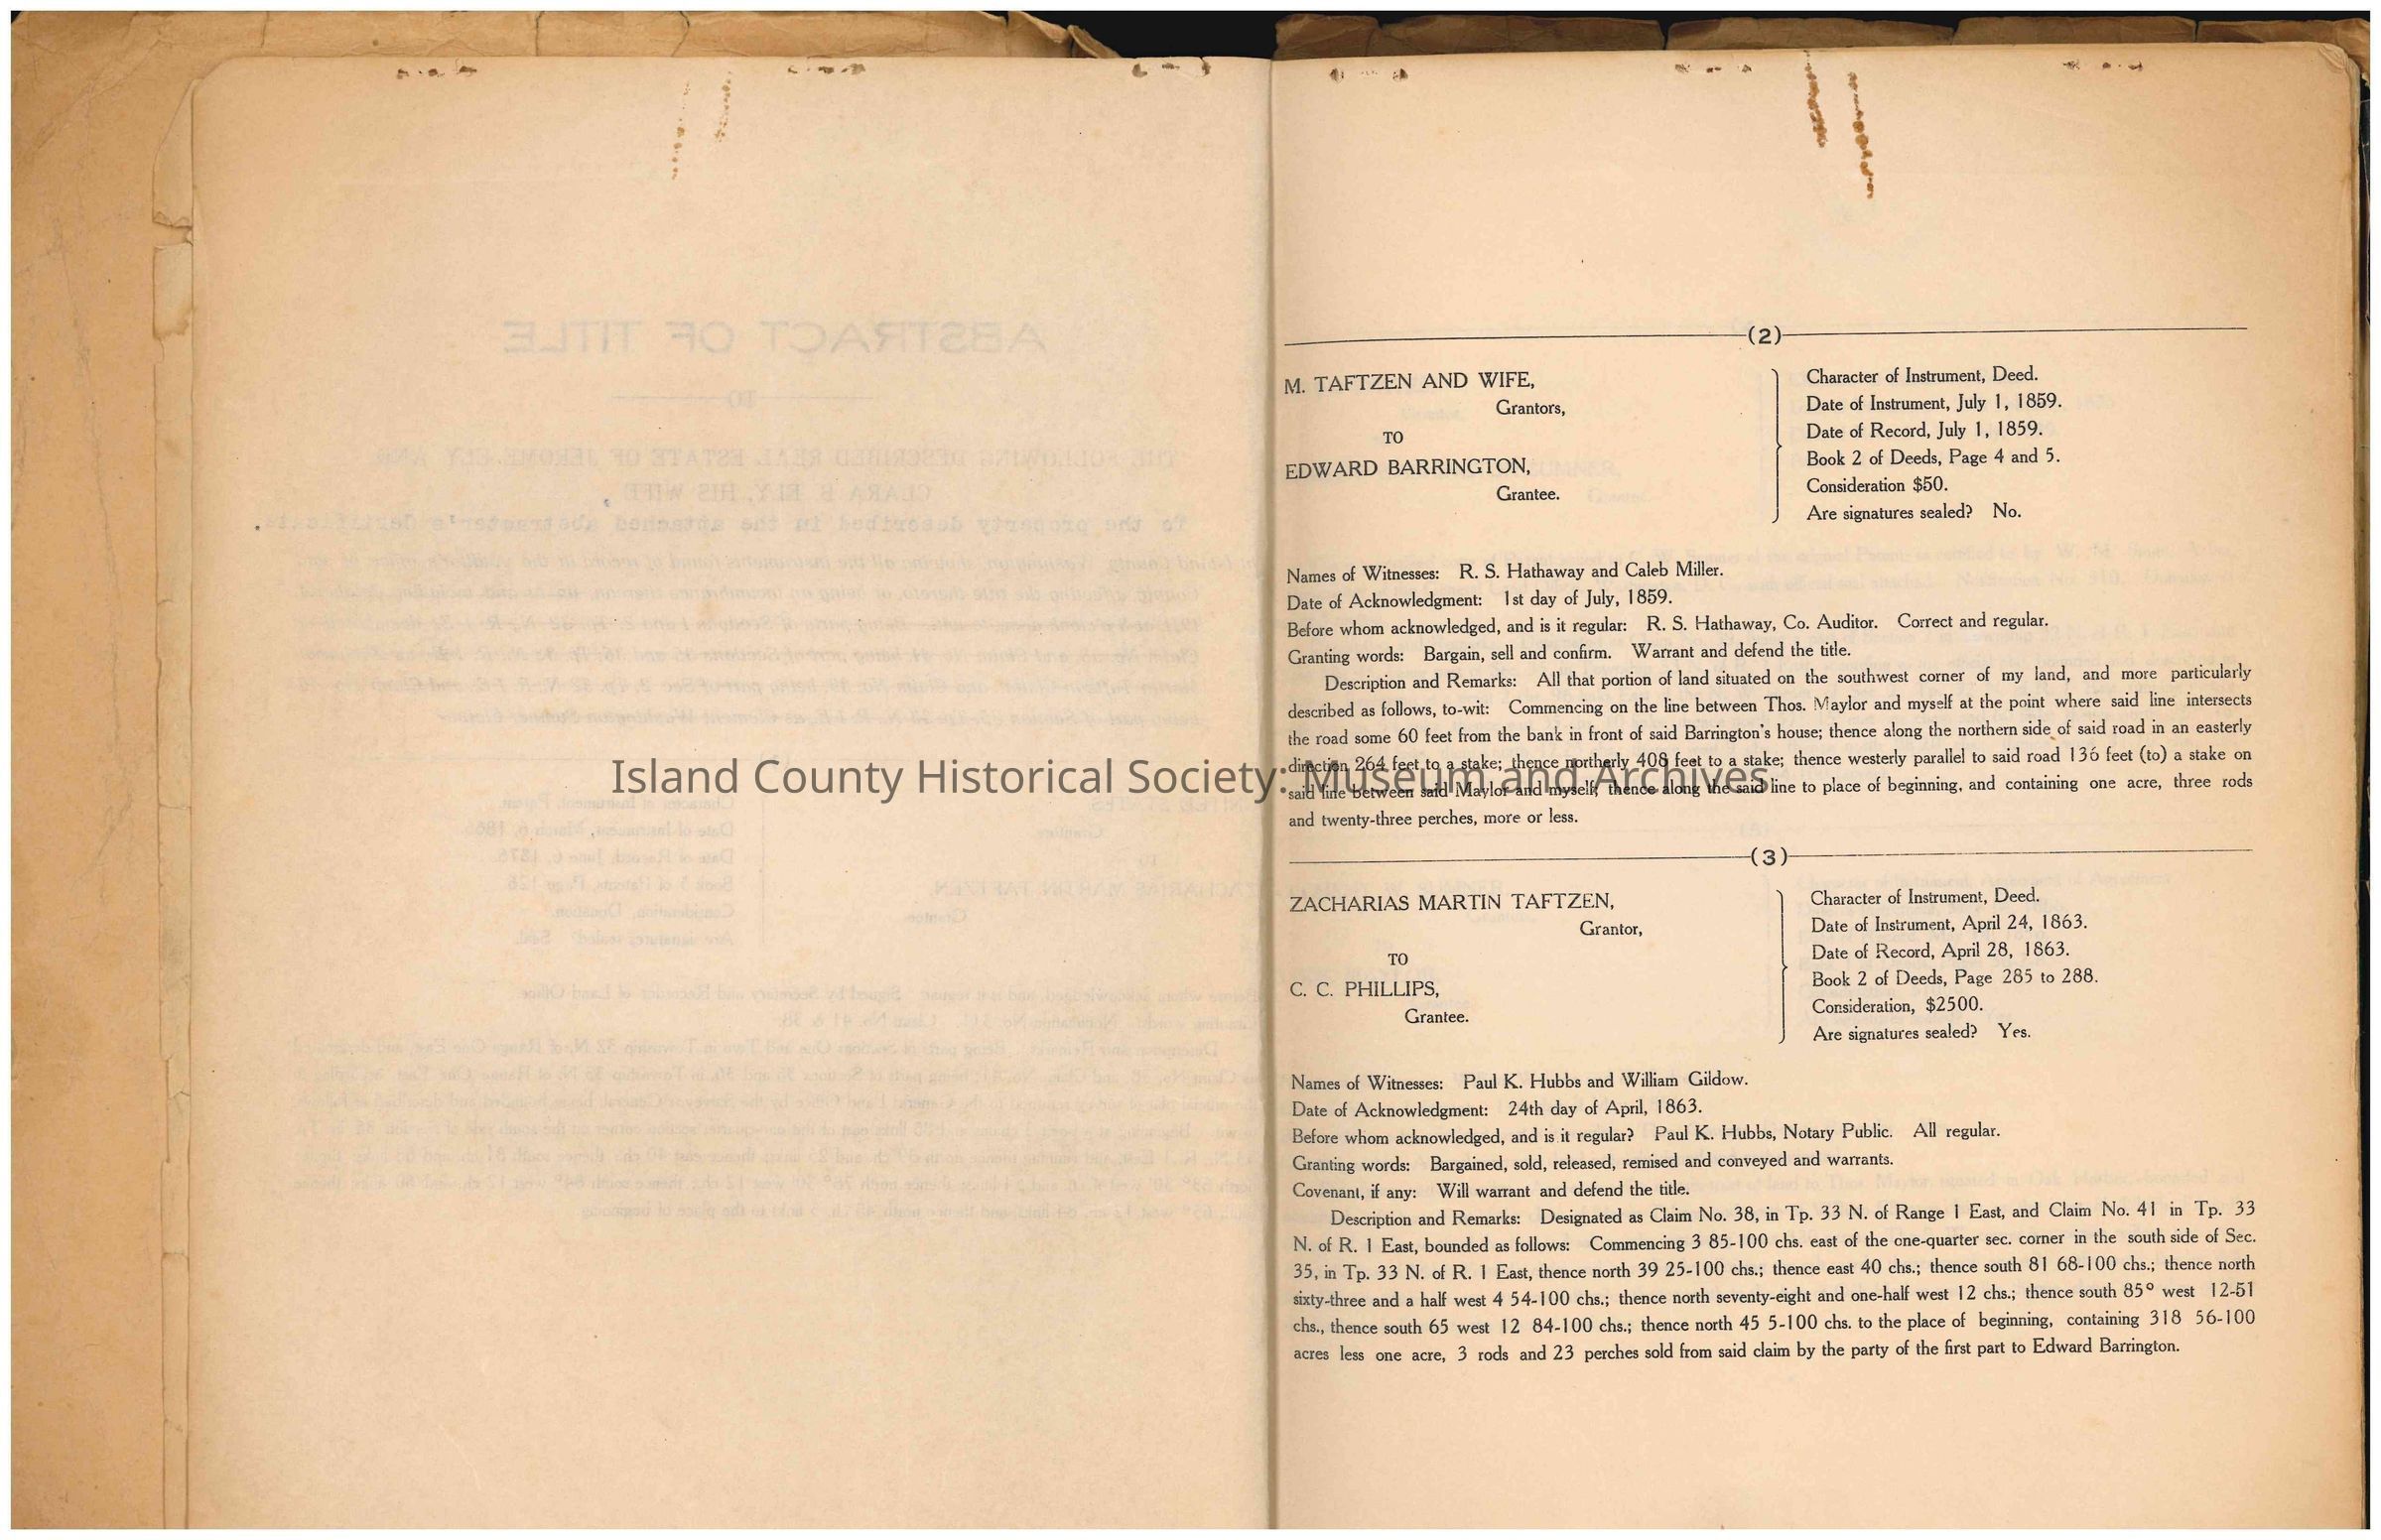 ABSTRACT OF TITLE
TO
THE FOLLOWING DESCRIBED REAL ESTATE OF JEROME ELY AND
CLARA B. ELY, HIS WIFE
To the property described in the attached abstracter's Certificate.
Island County Historical Society: Museum and Archives
(2)
M. TAFTZEN AND WIFE,
Grantors,
TO
EDWARD BARRINGTON,
Grantee.
Character of Instrument, Deed.
Date of Instrument, July 1, 1859.
Date of Record, July 1, 1859.
Book 2 of Deeds, Page 4 and 5.
Consideration $50.
Are signatures sealed? No.
Names of Witnesses: R. S. Hathaway and Caleb Miller.
Date of Acknowledgment: 1st day of July, 1859.
Before whom acknowledged, and is it regular: R. S. Hathaway, Co. Auditor. Correct and regular.
Granting words: Bargain, sell and confirm. Warrant and defend the title.
Description and Remarks: All that portion of land situated on the southwest corner of my land, and more particularly
described as follows, to-wit: Commencing on the line between Thos. Maylor and myself at the point where said line intersects
the road some 60 feet from the bank in front of said Barrington's house; thence along the northern side of said road in an easterly
direction 264 feet to a stake; thence northerly 408 feet to a stake; thence westerly parallel to said road 136 feet (to) a stake on
said line between said Maylor and myself; thence along the said line to place of beginning, and containing one acre, three rods
and twenty-three perches, more or less.
(3)
ZACHARIAS MARTIN TAFTZEN,
Grantor,
TO
C. C. PHILLIPS,
Grantee.
Character of Instrument, Deed.
Date of Instrument, April 24, 1863.
Date of Record, April 28, 1863.
Book 2 of Deeds, Page 285 to 288.
Consideration, $2500.
Are signatures sealed? Yes.
Names of Witnesses: Paul K. Hubbs and William Gildow.
Date of Acknowledgment: 24th day of April, 1863.
Before whom acknowledged, and is it regular? Paul K. Hubbs, Notary Public. All regular.
Granting words: Bargained, sold, released, remised and conveyed and warrants.
Covenant, if any: Will warrant and defend the title.
Description and Remarks: Designated as Claim No. 38, in Tp. 33 N. of Range 1 East, and Claim No. 41 in Tp. 33
N. of R. 1 East, bounded as follows: Commencing 3 85-100 chs. east of the one-quarter sec. corner in the south side of Sec.
35, in Tp. 33 N. of R. 1 East, thence north 39 25-100 chs.; thence east 40 chs.; thence south 81 68-100 chs.; thence north
sixty-three and a half west 4 54-100 chs.; thence north seventy-eight and one-half west 12 chs.; thence south 85° west 12-51
chs., thence south 65 west 12 84-100 chs.; thence north 45 5-100 chs. to the place of beginning, containing 318 56-100
acres less one acre, 3 rods and 23 perches sold from said claim by the party of the first part to Edward Barrington.